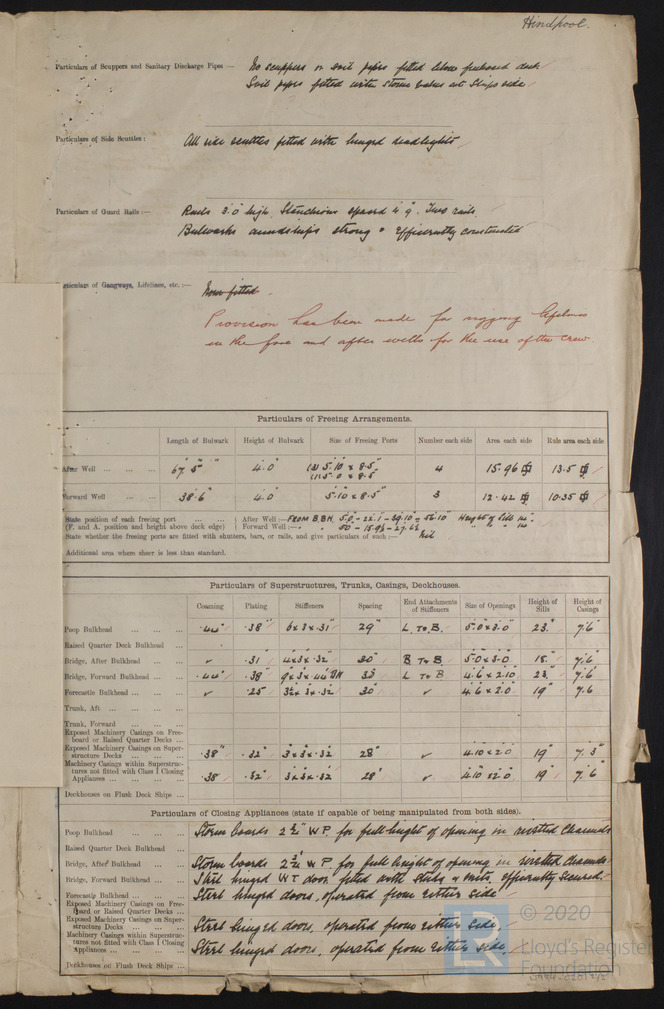 Hindpool.
Particulars of Scuppers and Sanitary Discharge Pipes :— No scuppers or soil pipes fitted below freeboard deck
Soil pipes fitted with storm valves at ships side.
Particulars of Side Scuttles : All side scuttles fitted with hinged deadlights
Particulars of Guard Rails :— Rails 3'.0" high. Stanchions spaced 4'.9". Two rails.
Bulwarks amidships strong & efficiently constructed
Particulars of Gangways, Lifelines, etc. :— None fitted.
Provision has been made for rigging lifelines
in the fore and after wells for the use of the crew.
Particulars of Freeing Arrangements.
Length of Bulwark Height of Bulwark Size of Freeing Ports Number each side Area each side Rule area each side
After Well ... ... ... 67'.5" 4'.0" (3) 5'.10" x 8.5" 4 15.96 13.5
(1) 5'.0" x 8.5"
Forward Well ... ... 38'.6" 4'.0" 5'.10 x 8.5" 3 12.42 10.35
State position of each freeing port ... ... After Well :— FROM B.BH. Height of Sills 14"
(F. and A. position and height above deck edge) Forward Well :—
State whether the freeing ports are fitted with shutters, bars, or rails, and give particulars of such :— Nil
Additional area where sheer is less than standard.
Particulars of Superstructures, Trunks, Casings, Deckhouses.
Coaming Plating Stiffeners Spacing End Attachments of Stiffeners Size of Openings Height of Sills Height of Casings
Poop Bulkhead ... ... ... .44" .38" 6x3x.31" 29" L To B. 5'.0x3'.0" 23" 7'.6"
Raised Quarter Deck Bulkhead
Bridge, After Bulkhead ... ... ✓ .31 4x3x.32" 30" B To B. 5'.0x3'.0 18" 7'.6"
Bridge, Forward Bulkhead ... ... .44" .38" 9x3x.44" 33" L To B 4'.6 x 2'.10 23" 7'.6"
Forecastle Bulkhead ... ... ✓ .25" 3½x3x.32 30" ✓ 4'.6 x 2'.0 19" 7'.6
Trunk, Aft ... ... ... ...
Trunk, Forward ... ... ...
Exposed Machinery Casings on Free-
board or Raised Quarter Decks ...
Exposed Machinery Casings on Super-
structure Decks ... ... ... .38" .32" 3x3x.32 28" ✓ 4'.10 x 2'.0 19" 7'.3"
Machinery Casings within Superstruc-
tures not fitted with Class I Closing
Appliances ... ... ... .38 .32" 3x3x.32 28" ✓ 4'.10 x 2'.0 19" 7'.6"
Deckhouses on Flush Deck Ships ...
Particulars of Closing Appliances (state if capable of being manipulated from both sides).
Poop Bulkhead ... ... ... Storm boards 2½" W.P. for full height of opening in riveted channels
Raised Quarter Deck Bulkhead ...
Bridge, After Bulkhead ... ... Storm boards 2½" W.P. for full height of opening in riveted channels.
Bridge, Forward Bulkhead ... ... Steel hinged WT door fitted with studs & nuts, efficiently secured.
Forecastle Bulkhead ... ... Steel hinged doors, operated from either side
Exposed Machinery Casings on Free-
board or Raised Quarter Decks ...
Exposed Machinery Casings on Super-
structure Decks ... ... ... Steel hinged doors, operated from either side,
Machinery Casings within Superstruc-
tures not fitted with Class I Closing
Appliances ... ... ... Steel hinged doors, operated from either side.
Deckhouses on Flush Deck Ships ...
© 2020
Lloyd's Register
Foundation